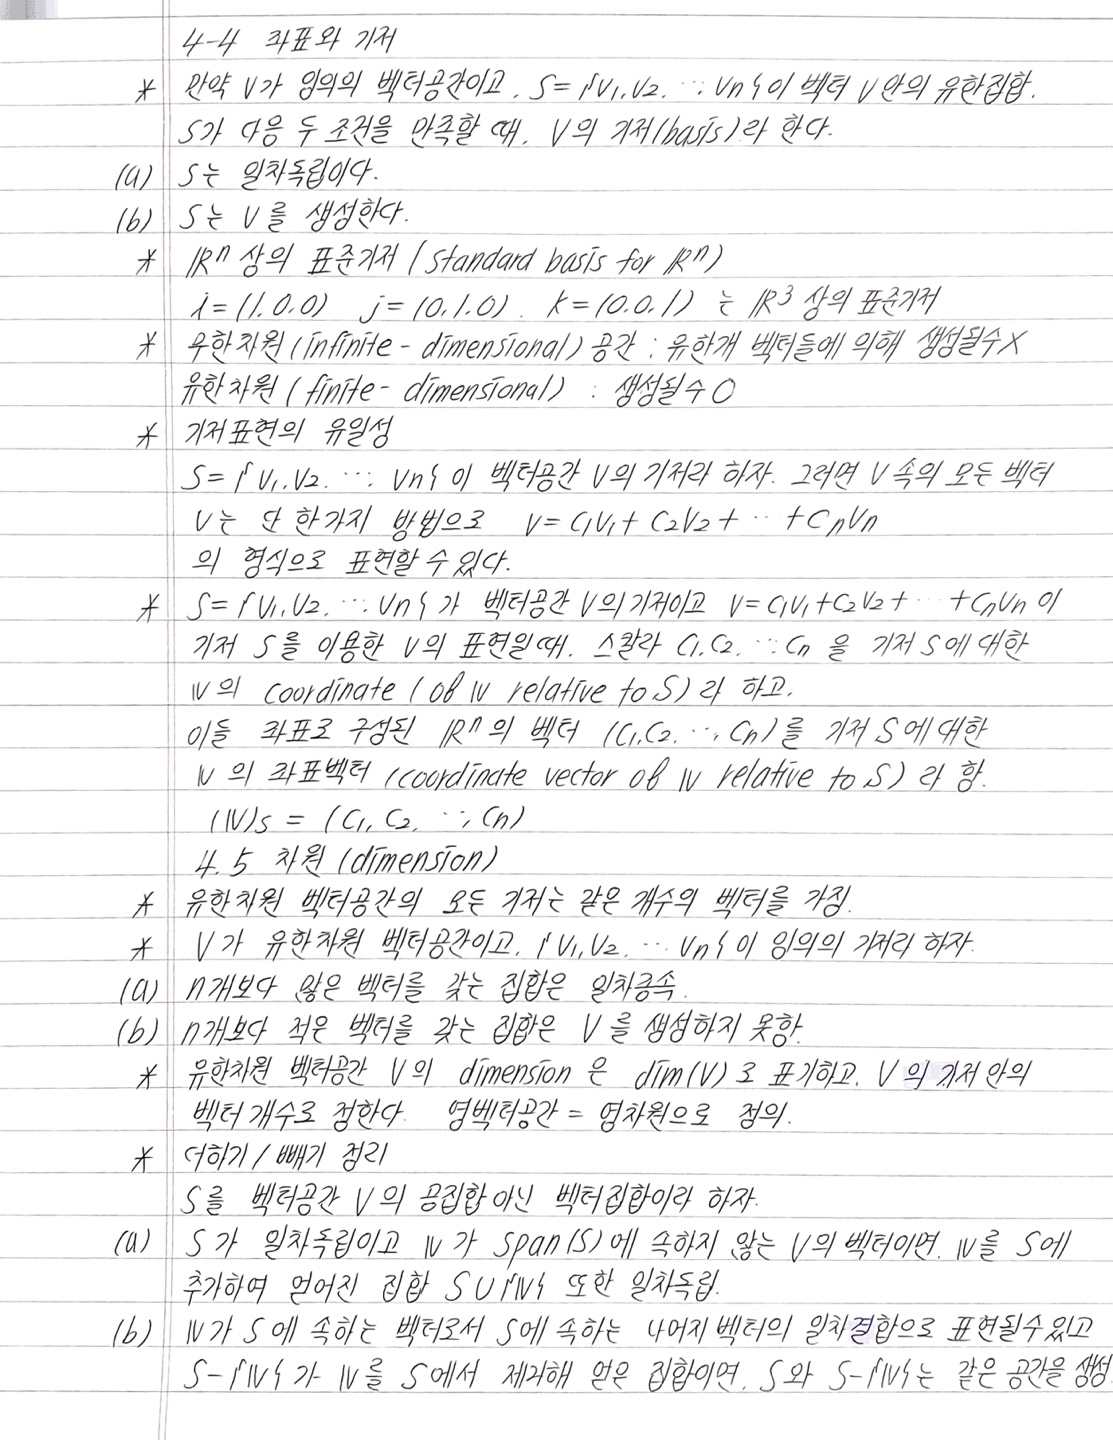 4-4 좌표와 기저
* 만약 V가 임의의 벡터공간이고, S={v1, v2, ..., vn}이 벡터 V안의 유한집합.
S가 다음 두 조건을 만족할 때, V의 기저(basis)라 한다.
(a) S는 일차독립이다.
(b) S는 V를 생성한다.
* ℝⁿ 상의 표준기저 (standard basis for ℝⁿ)
i=(1,0,0) j=(0,1,0). k=(0,0,1) 는 ℝ³ 상의 표준기저
* 무한차원(infinite-dimensional) 공간 : 유한개 벡터들에 의해 생성될수X
유한차원 (finite-dimensional) : 생성될수O
* 기저표현의 유일성
S={v1, v2, ..., vn}이 벡터공간 V의 기저라 하자. 그러면 V 속의 모든 벡터
V는 단 한가지 방법으로 V=C1V1+C2V2+...+CnVn
의 형식으로 표현할 수 있다.
* S={v1, v2, ..., vn}가 벡터공간 V의 기저이고 V=C1V1+C2V2+...+CnVn이
기저 S를 이용한 V의 표현일때, 스칼라 C1, C2, ..., Cn을 기저 S에 대한
𝕧의 coordinate (of 𝕧 relative to S)라 하고,
이들 좌표로 구성된 ℝⁿ의 벡터 (C1, C2, ..., Cn)를 기저 S에 대한
𝕧의 좌표벡터 (coordinate vector of 𝕧 relative to S)라 함.
(𝕧)s = (C1, C2, ..., Cn)
4.5 차원 (dimension)
* 유한차원 벡터공간의 모든 기저는 같은 개수의 벡터를 가짐.
* V가 유한차원 벡터공간이고, {v1, v2, ... vn}이 임의의 기저라 하자.
(a) n개보다 많은 벡터를 갖는 집합은 일차종속.
(b) n개보다 적은 벡터를 갖는 집합은 V를 생성하지 못함.
* 유한차원 벡터공간 V의 dimension은 dim(V)로 표기하고, V의 기저 안의
벡터 개수로 정한다. 영벡터공간 = 영차원으로 정의.
* 더하기/빼기 정리
S를 벡터공간 V의 공집합 아닌 벡터집합이라 하자.
(a) S가 일차독립이고 𝕧가 span(S)에 속하지 않는 V의 벡터이면, 𝕧를 S에
추가하여 얻어진 집합 S∪{𝕧} 또한 일차독립.
(b) 𝕧가 S에 속하는 벡터로서 S에 속하는 나머지 벡터의 일차결합으로 표현될수있고
S-{𝕧}가 𝕧를 S에서 제거해 얻은 집합이면, S와 S-{𝕧}는 같은 공간을 생성